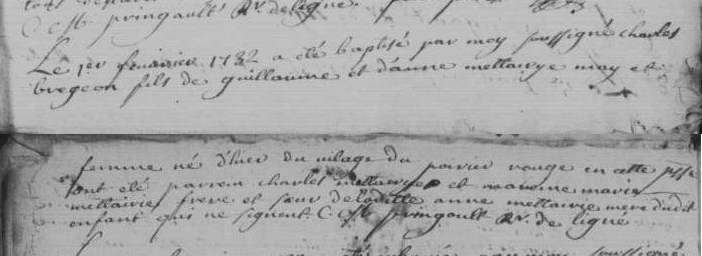 C M pringault Rr. de ligné
Le 1er feuvrier 1732 a été baptisé par moy soussigné charles
bregeon fils de guillaume et d'anne mettairye may et
femme né d'hier du vilage du poirier rouge en cette psse
ont été parrein charles mettairye et maraine marie
mettairie frere et sœur de laditte anne mettairie mere dudit
enfant qui ne signent C M pringault Rr. de ligné
soussigné